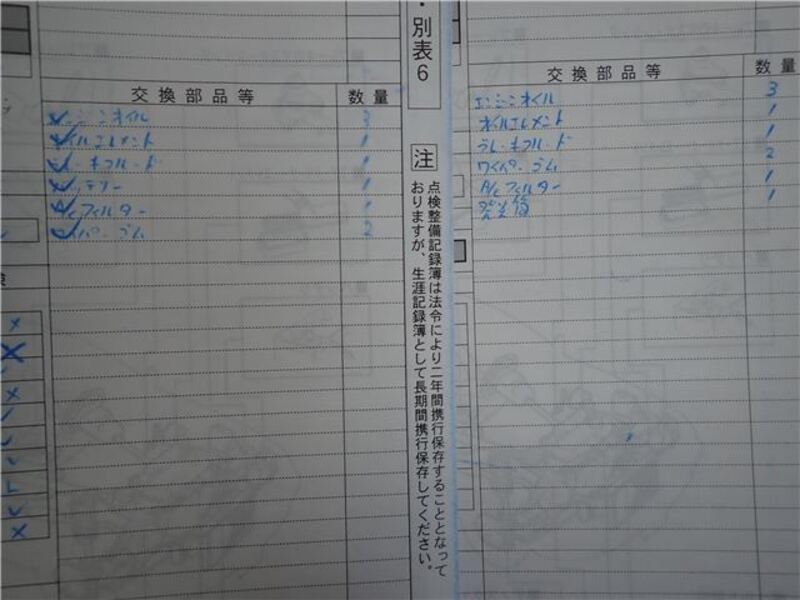 交換部品等 数量
エンジンオイル 3
オイルエレメント 1
ブレーキフルード 1
バッテリー 1
A/Cフィルター 1
ワイパーゴム 2
・別表6
注
点検整備記録簿は法令により二年間携行保存することとなって
おりますが、生涯記録簿として長期間携行保存してください。
交換部品等 数量
エンジンオイル 3
オイルエレメント 1
ブレーキフルード 1
ワイパーゴム 2
A/Cフィルター 1
1